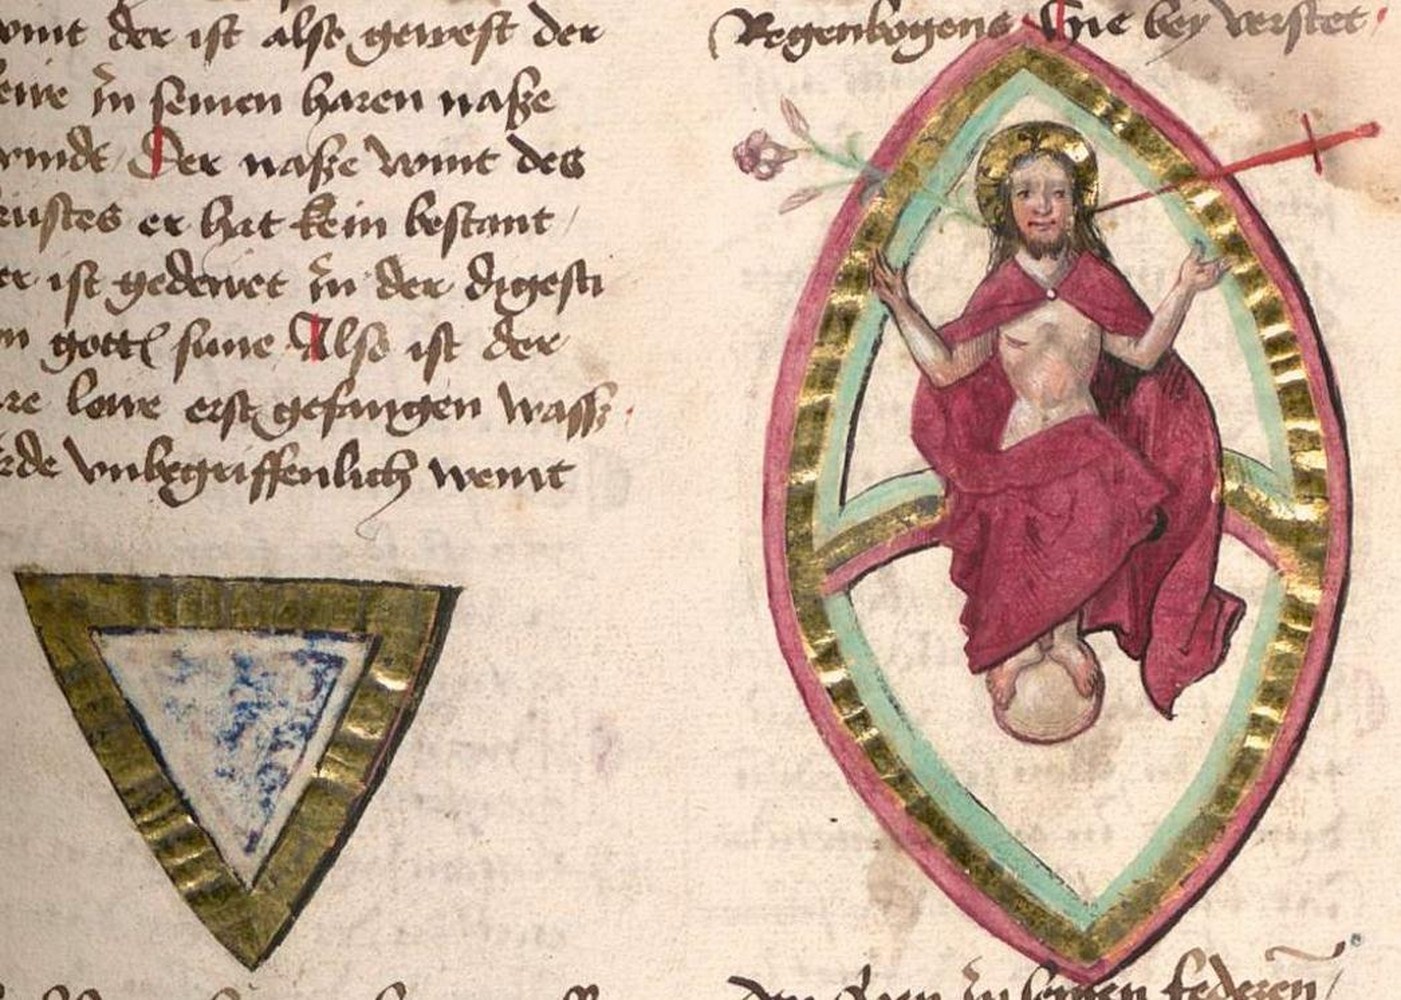 wint der ist also gewest der
lewe in seinen haren nasse
winde Der nasse wint des
er hat kein bestant
er ist gedewet in der digesti
gottes sune Also ist der
lewe erst gefangen wass
vnbegriffenlich wenit
Regenbogens Hie bey verstet
in seinen federen